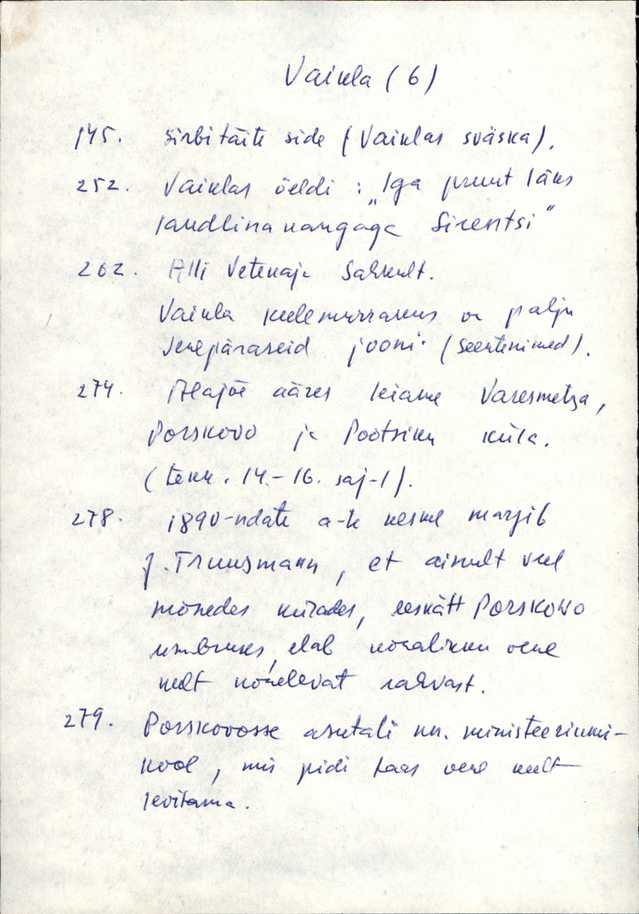 Vaikla (6)
145. sirbitäite side (Vaiklas sväska).
252. Vaiklas öeldi : „Iga pruut läks
landlinakangaga Sirentsi“
262. Alli Vetenaja Sahkult.
Vaikla keelemurrakus on palju
venepäraseid jooni. (seentenimed).
274. Alajõe ääres leiame Varesmetsa,
Porskovo ja Pootsiku küla.
(tekk. 14.-16. saj-l).
278. 1890-ndate a-te keskel märgib
J. Truusmann, et ainult veel
mõnedes külades, eeskätt Porskovo
ümbruses, elab vene
kelt kõnelevat rahvast.
279. Porskovosse asutati nn. ministeeriumi-
kool, mis pidi kaas vene keelt
levitama.